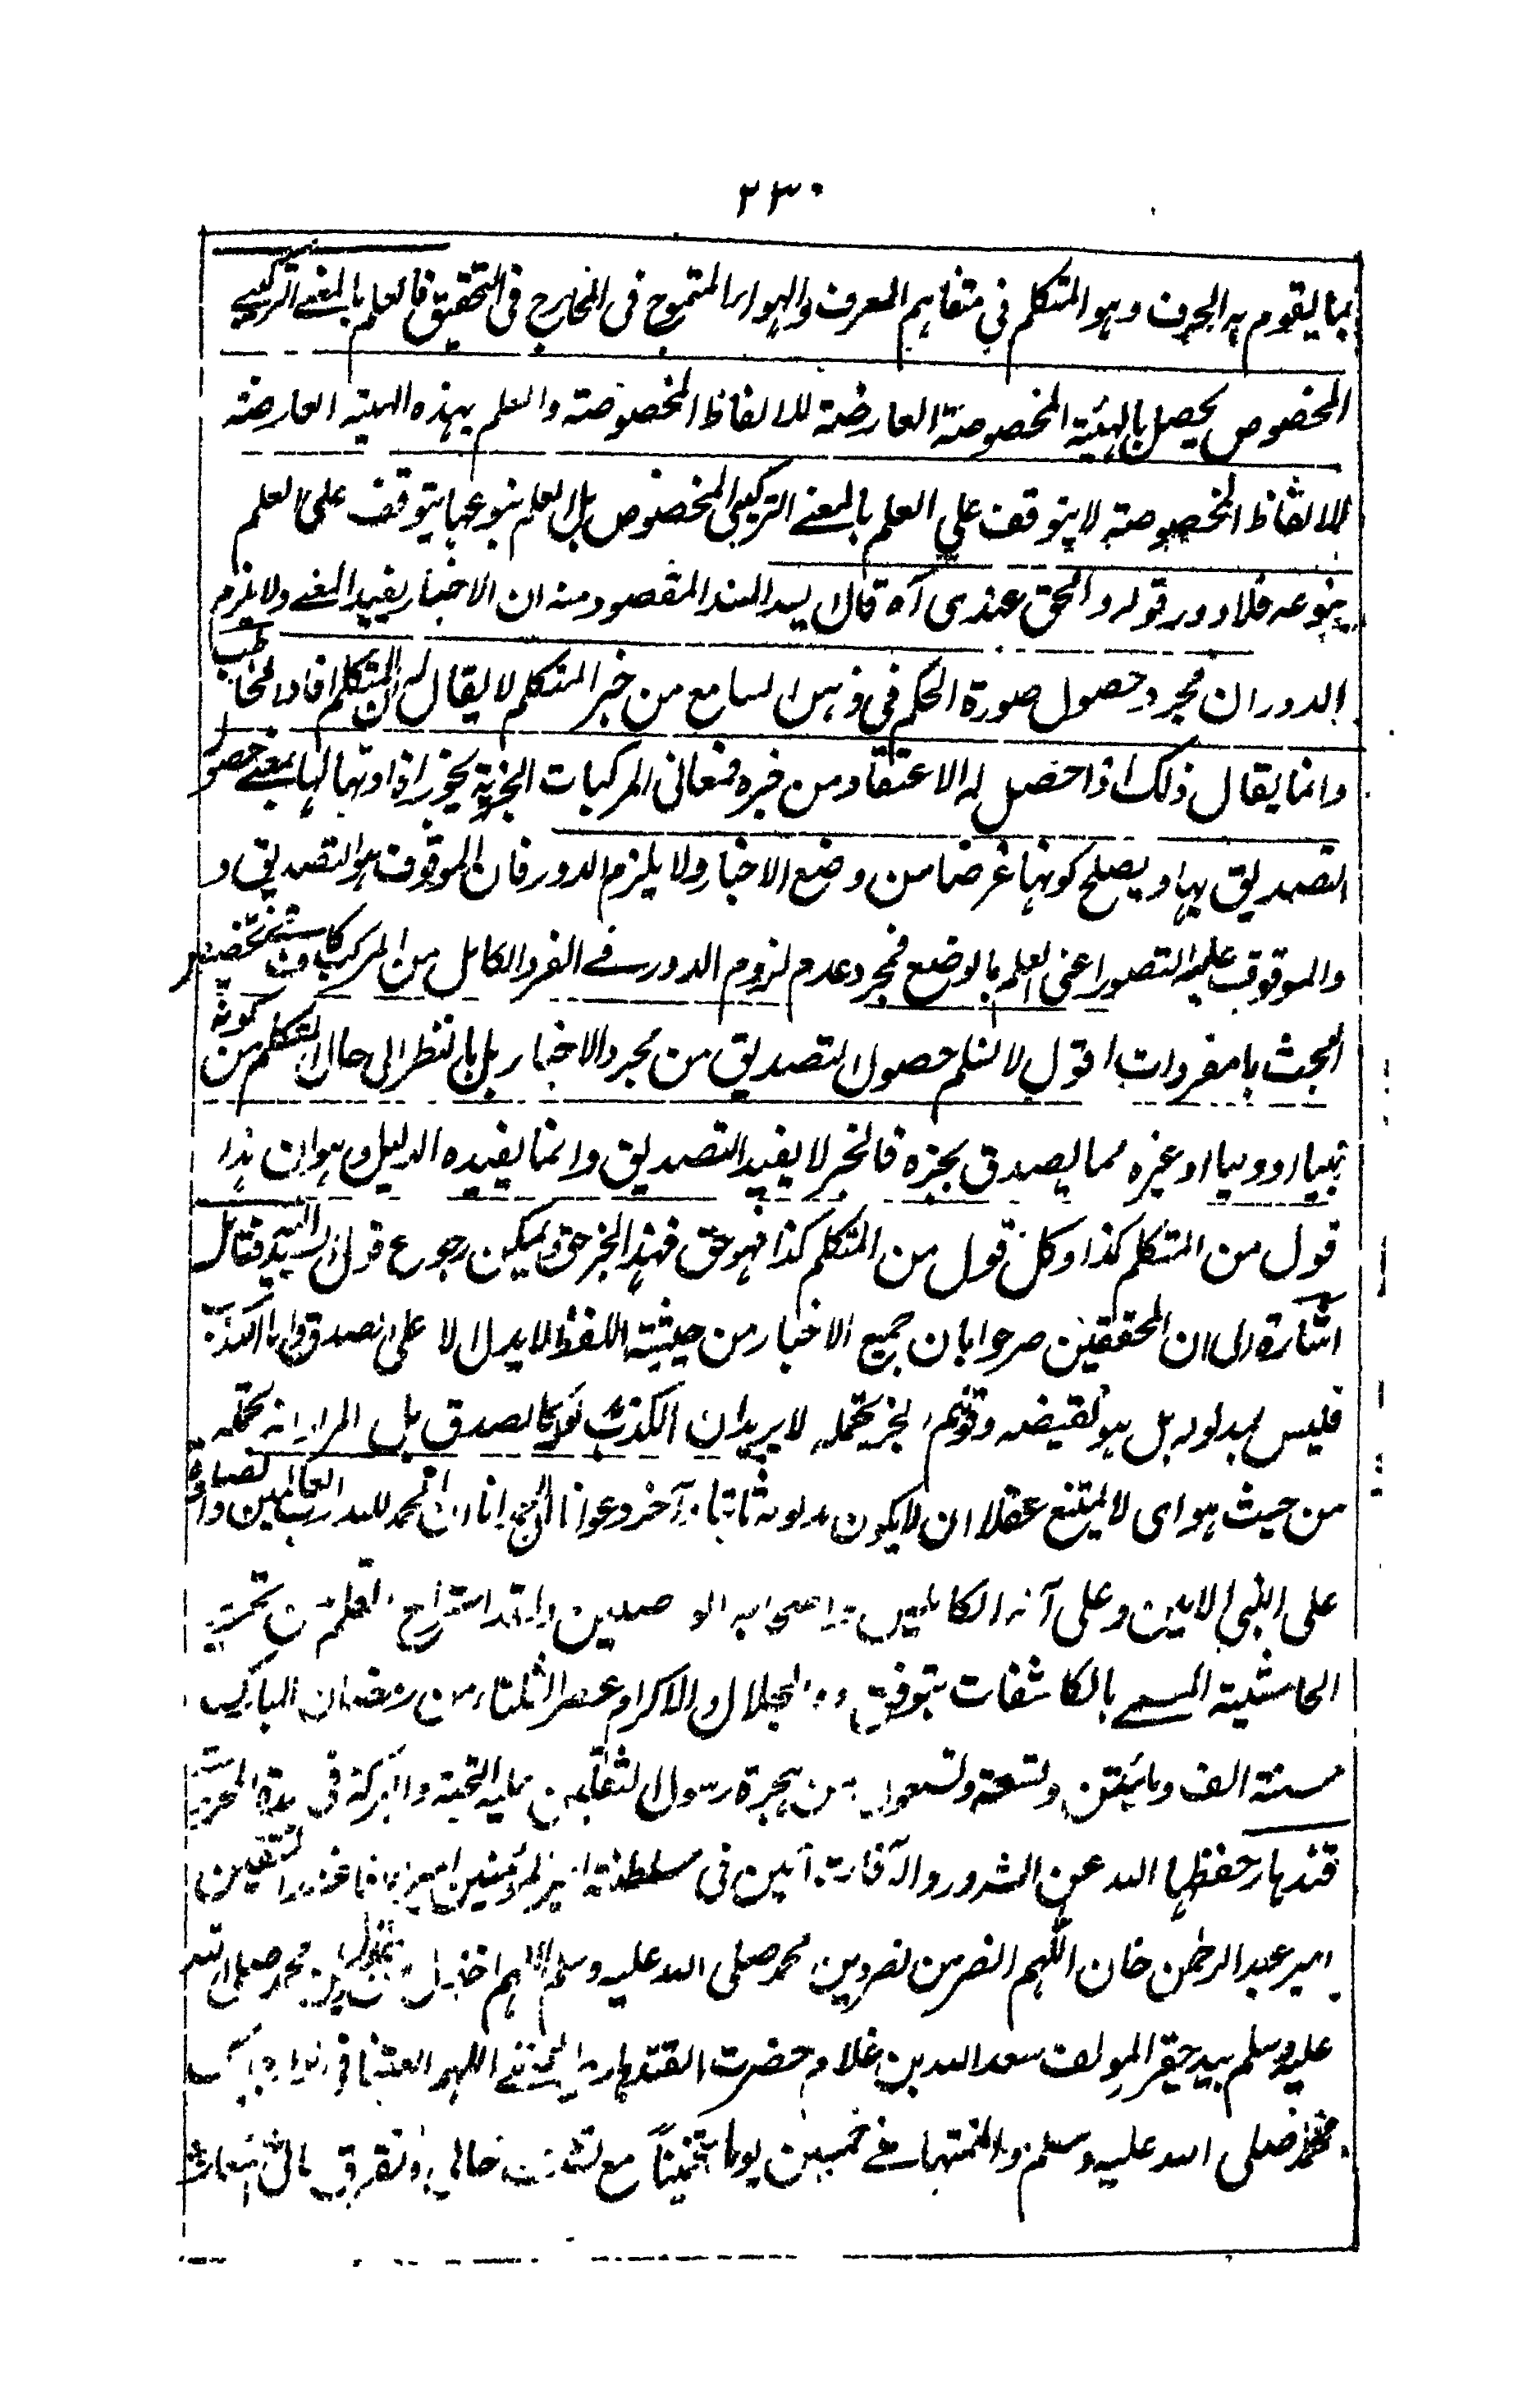 ٢٣٠
بما يقوم به الحرف وهو المتكلم في متفاهم المعرف والهواء المتموج في المخارج في التحقيق فالعلم بالمعنے التركيبے
المخصوص يحصل بالهيئة المخصوصة العارضة للالفاظ المخصوصة والعلم بهذه الهيئة العارضة
للالفاظ المخصوصة لا يتوقف علي العلم بالمعنے التركيبي المخصوص بل العلم بنوعها يتوقف على العلم
بنوعه فلا دور قوله والحق عندى آه قال السيد السند المقصود منه ان الاخبار يفيد المعنے ولا يلزم
الدور ان مجرد حصول صورة الحكم في ذهن السامع من خبر المتكلم لا يقال ان المتكلم افاد المخاطب
وانما يقال ذلك اذا حصل له الاعتقاد من خبره فمعانى المركبات الخبرية يجوز افادتها لها بمعنے حصول
التصديق بها ويصلح كونها غرضا من وضع الاخبار ولا يلزم الدور فان الموقوف هو التصديق و
والموقوف عليه التصور اعنى العلم بالوضع فمجرد عدم لزوم الدور فے الفرد الكامل من المركبات
البحث بامفردات اقول لا نسلم حصول التصديق من مجرد الاخبار بل بالنظر الى حال المتكلم من كونه
نبيا او وليا او غيره مما يصدق بخبره فالخبر لا يفيد التصديق وانما يفيده الدليل وهو ان هذا
قول من المتكلم كذا وكل قول من المتكلم كذا فهو حق فهذا الخبر حق ويمكن رجوع قول السيد فتأمل
اشارة الى ان المحققين صرحوا بان جميع الاخبار من حيثية اللفظ لا يدل الا على الصدق واما الكذب
فليس بمدلوله بل هو نقيضه وقولهم الخبر يحتمله لا يريد ان الكذب كالصدق بل المراد انه يحتمله
من حيث هو اى لا يمتنع عقلا ان لا يكون مدلوله ثابتا آخر دعوانا ان الحمد لله رب العالمين والصلوة
على النبى الامين وعلى آله الكاملين واصحابه الواصلين وقد استراح القلم من تحرير
الحاشية المسمے بالكاشفات بتوفيق ذو الجلال والاكرام عصر الثلثاء من رمضان المبارك
سنة الف ومائتين وتسعة وتسعون من هجرة رسول الثقلين عليه التحية والبركة فى بلدة
قندهار حفظها الله عن الشرور والآفات آمين فى سلطنة امير المؤمنين
امير عبد الرحمن خان اللهم انصر من نصر دين محمد صلى الله عليه وسلم اللهم اخذل من خذل دين محمد صلى الله
عليه وسلم بيد حقير المولف سعد الله بن غلام حضرت القندهارى اللهم
محمد صلى الله عليه وسلم والتمتها فے خمسين يوما تخمينا مع تشتت حالى وتفرق بالى